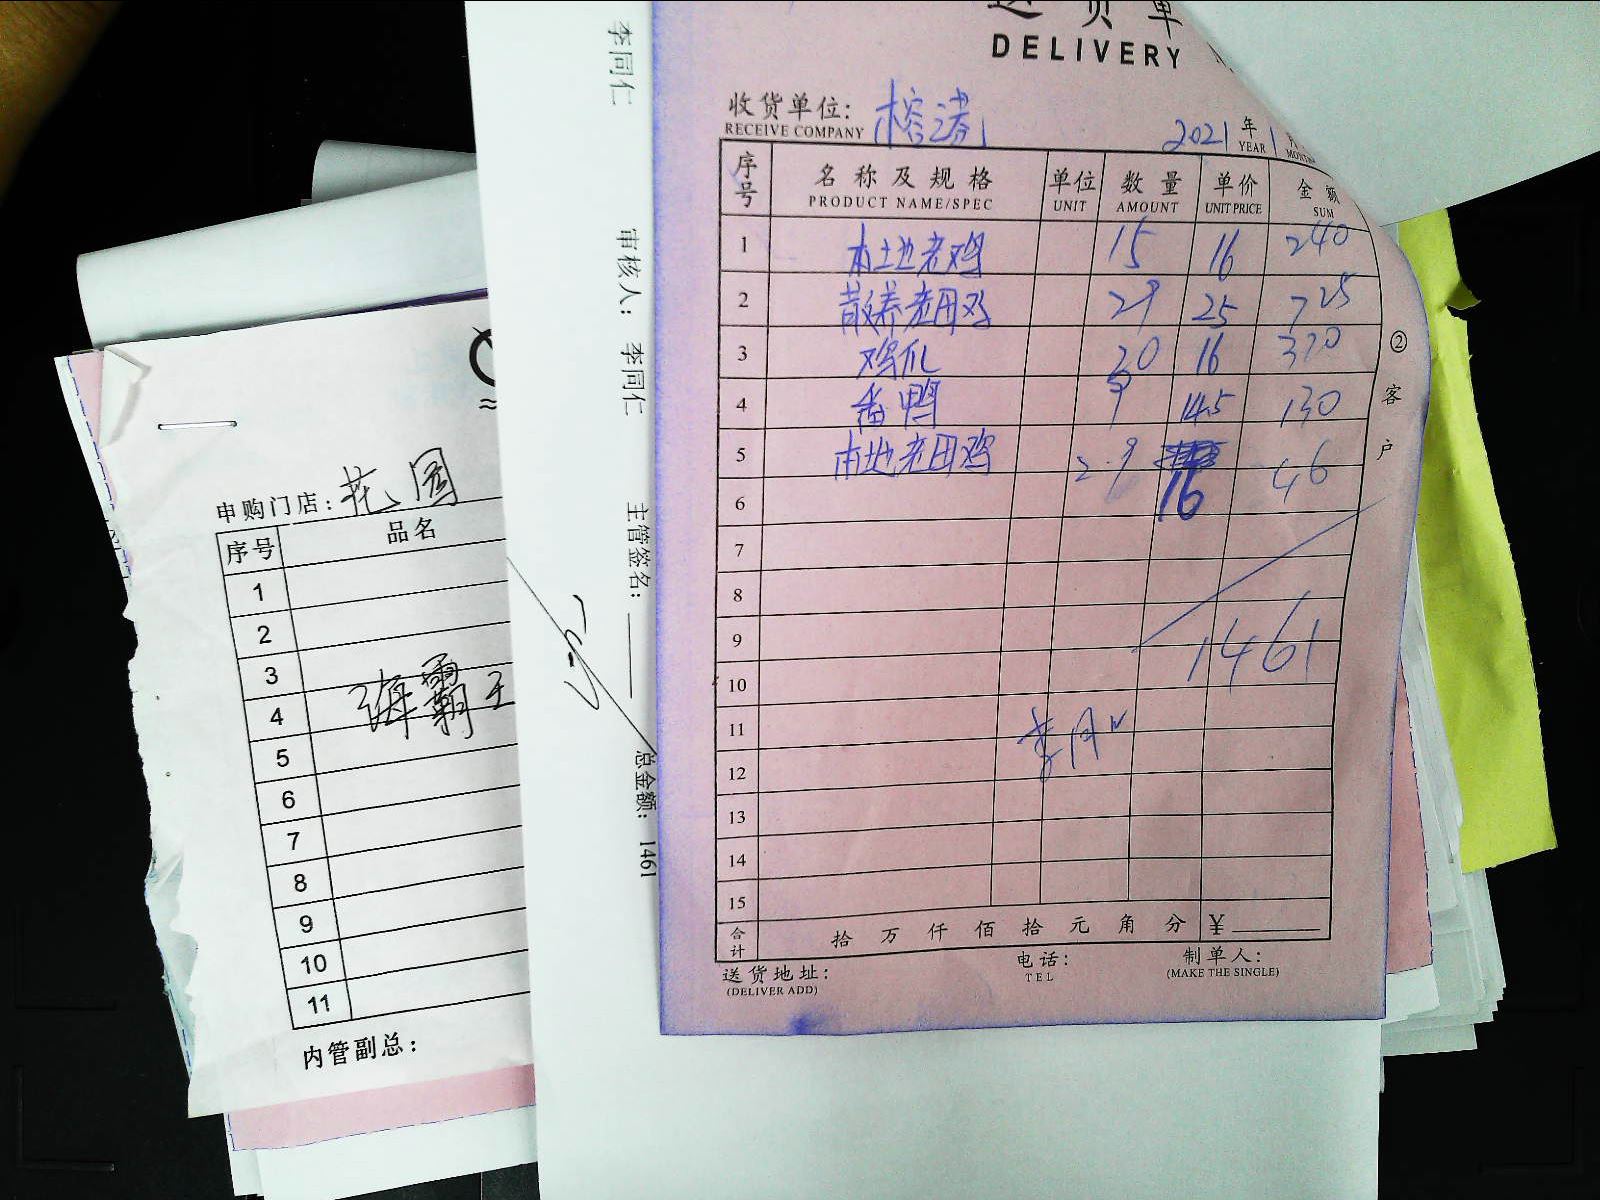 送货单
DELIVERY
收货单位: 榕涛
RECEIVE COMPANY
2021年1月
YEAR MONTH
序号 名称及规格 单位 数量 单价 金额
PRODUCT NAME/SPEC UNIT AMOUNT UNIT PRICE SUM
1 本土地老鸡 15 16 240
2 散养老母鸡 29 25 725
3 鸡爪 20 16 320
4 番鸭 9 14.5 130
5 本地老母鸡 2.9 16 46
6
7
8
9 1461
10
11 李同仁
12
13
14
15
合计 拾 万 仟 佰 拾 元 角 分 ¥
送货地址: 电话: 制单人:
(DELIVER ADD) TEL (MAKE THE SINGLE)
②客户
李同仁
审核人: 李同仁
主管签名:
总金额: 1461
申购门店: 花园
序号 品名
1
2
3
4 海霸王
5
6
7
8
9
10
11
内管副总: